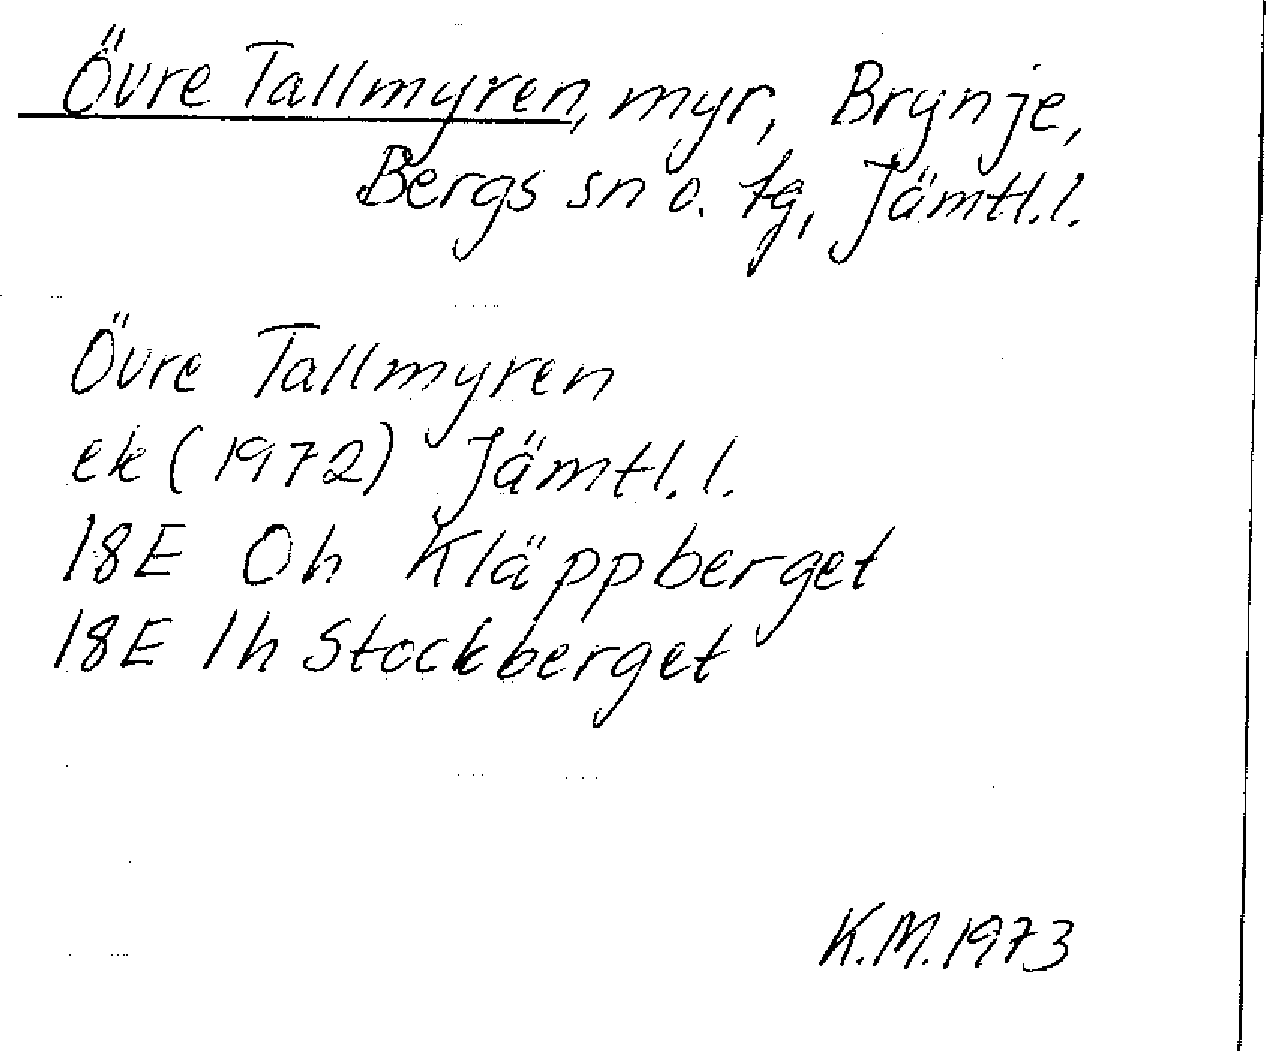 Övre Tallmyren, myr, Brynje,
Bergs sn o. tg, Jämtl.l.
Övre Tallmyren
ek (1972) Jämtl.l.
18E 0h Kläppberget
18E 1h Stockberget
K.M.1973